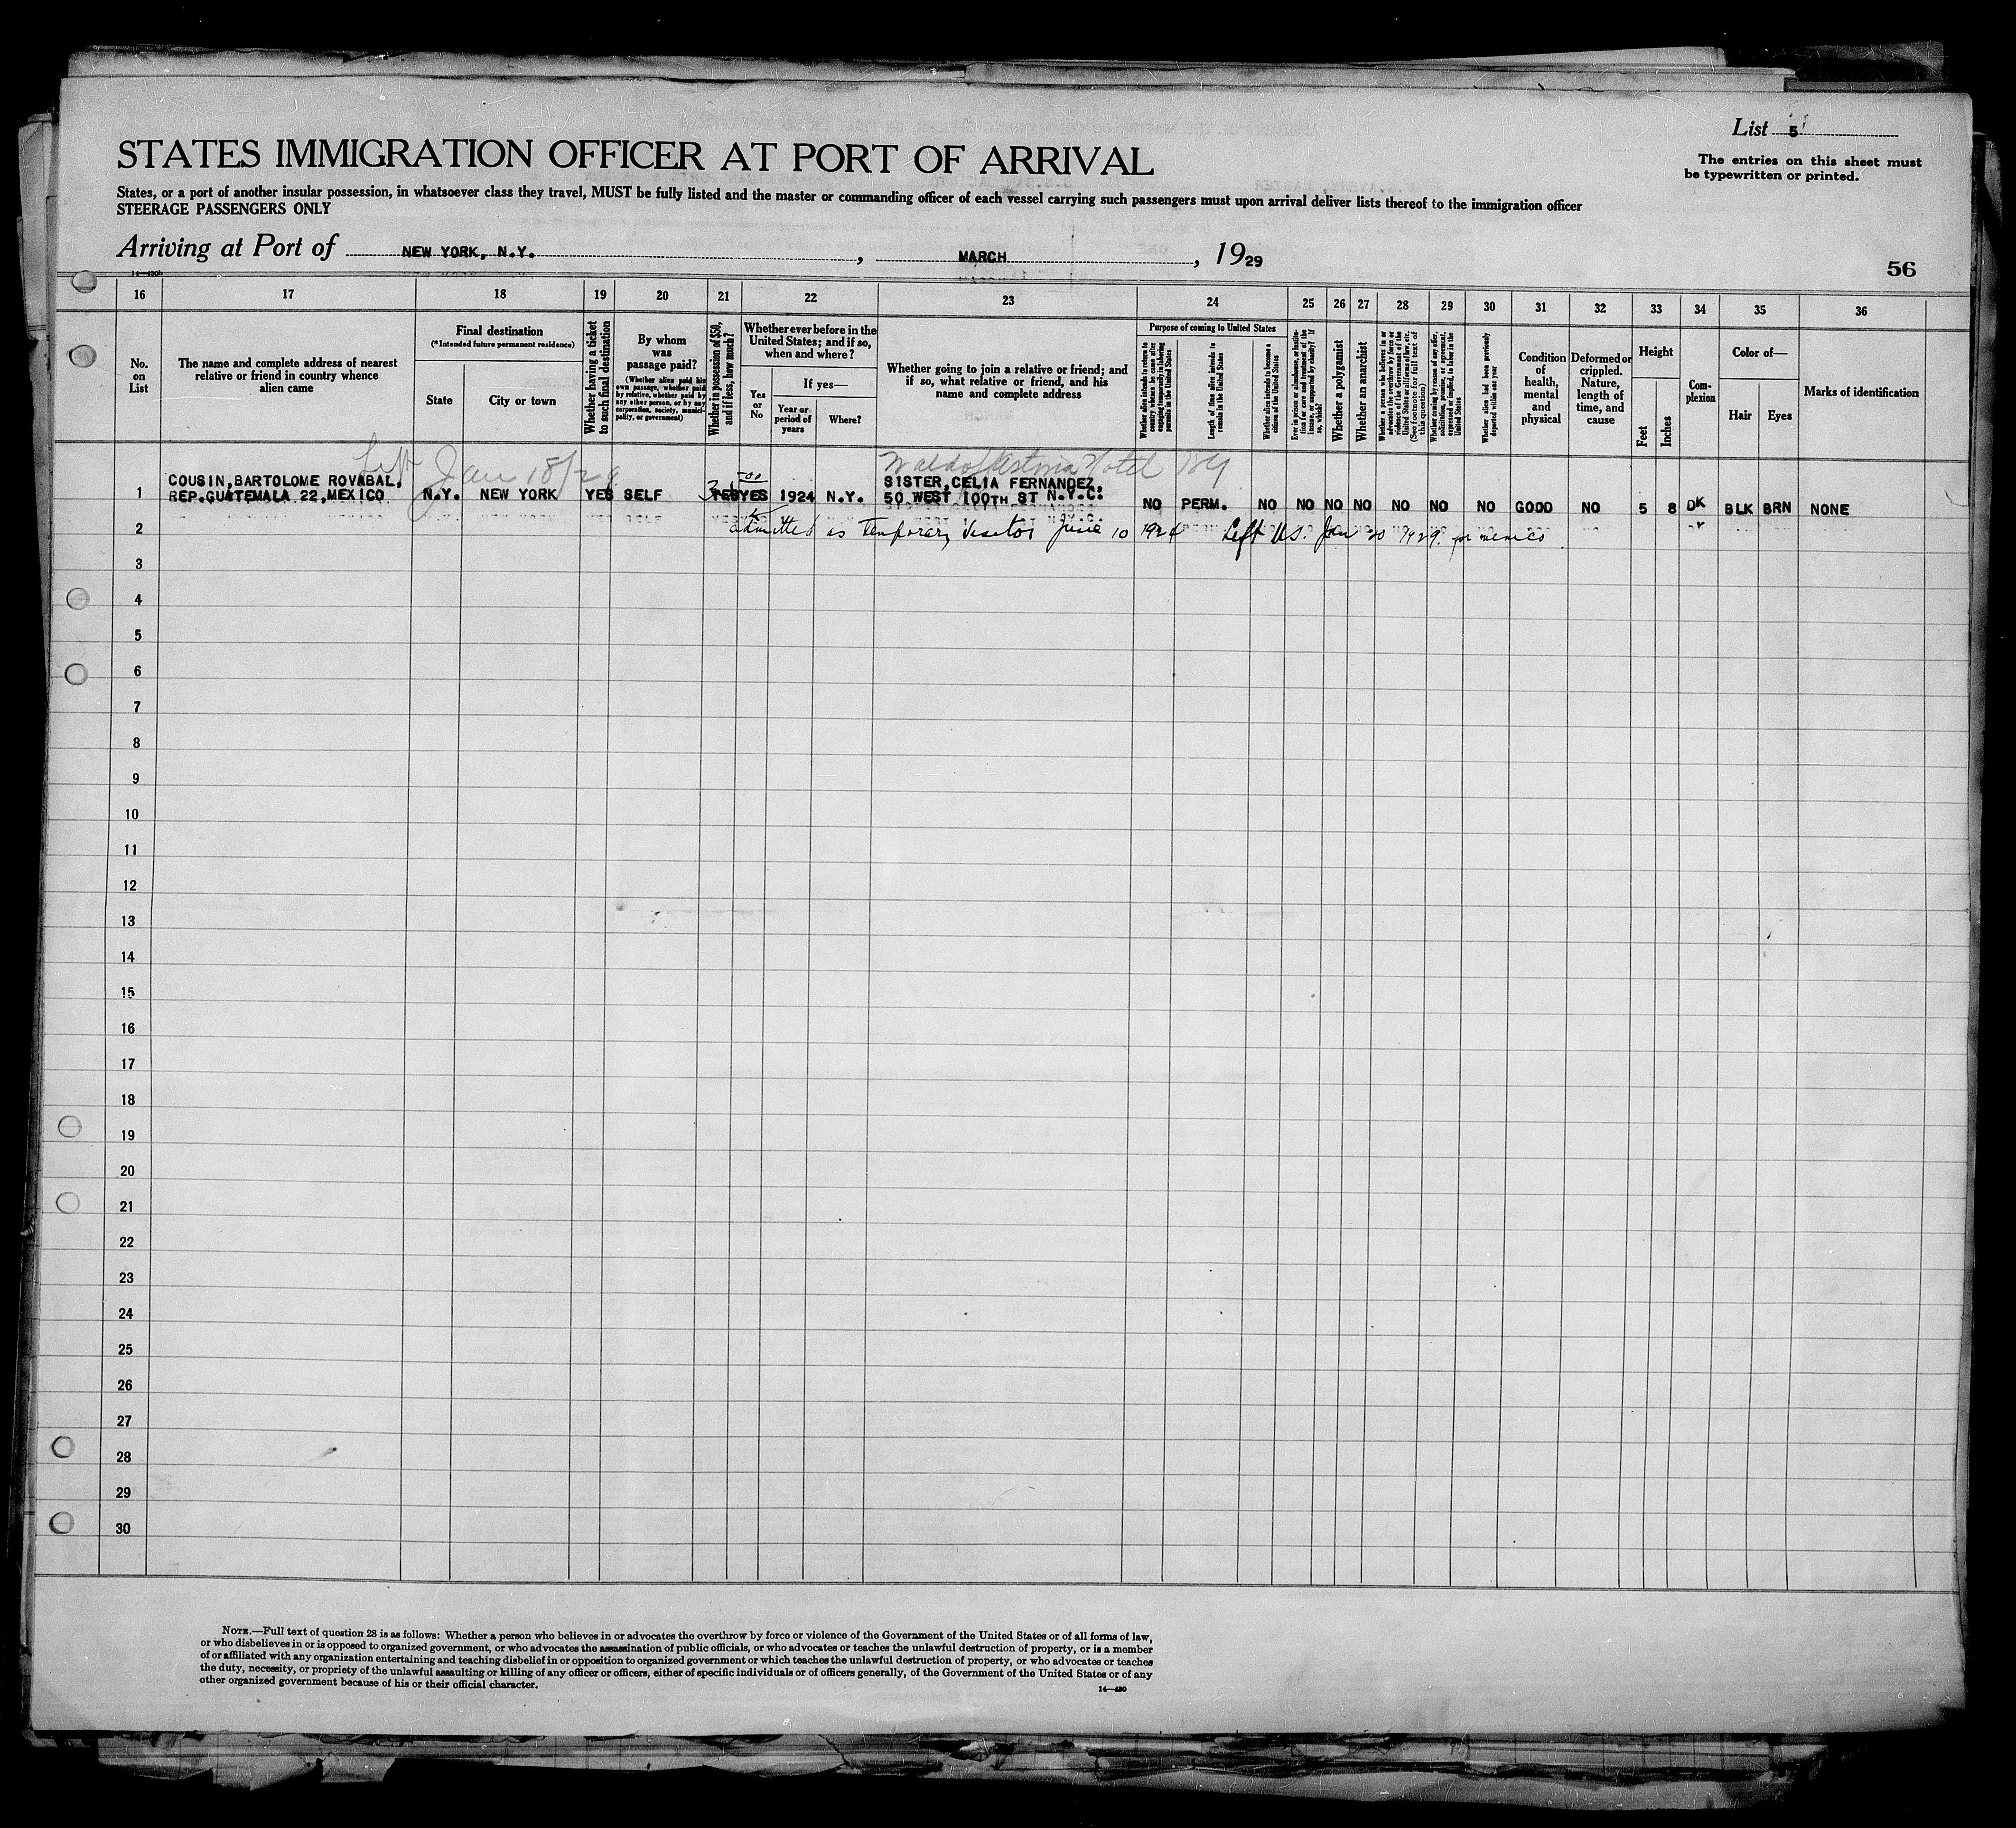 List 5
The entries on this sheet must
be typewritten or printed.
STATES IMMIGRATION OFFICER AT PORT OF ARRIVAL
States, or a port of another insular possession, in whatsoever class they travel, MUST be fully listed and the master or commanding officer of each vessel carrying such passengers must upon arrival deliver lists thereof to the immigration officer
STEERAGE PASSENGERS ONLY
Arriving at Port of NEW YORK, N.Y. , MARCH , 1929
56
16 17 18 19 20 21 22 23 24 25 26 27 28 29 30 31 32 33 34 35 36
No. on List
The name and complete address of nearest
relative or friend in country whence
alien came
Final destination
(*Intended future permanent residence)
State
City or town
Whether having a ticket
to such final destination
By whom
was
passage paid?
(Whether alien paid his
own passage, whether paid
by relative, whether paid by
any other person, or by any
corporation, society, munici-
pality, or government)
Whether in possession of $50,
and if less, how much?
Whether ever before in the
United States; and if so,
when and where?
Yes
or
No
If yes—
Year or
period of
years
Where?
Whether going to join a relative or friend; and
if so, what relative or friend, and his
name and complete address
Purpose of coming to United States
Whether alien intends to return to
country whence he came after
engaging temporarily in laboring
pursuits in the United States
Length of time alien intends to
remain in the United States
Whether alien intends to become a
citizen of the United States
Ever in prison or almshouse, or institu-
tion for care and treatment of the
insane, or supported by charity? If
so, which?
Whether a polygamist
Whether an anarchist
Whether a person who believes in or
advocates the overthrow by force or
violence of the Government of the
United States or all forms of law, etc.
(See footnote for full text of
this question)
Whether coming by reason of any offer,
solicitation, promise, or agreement,
expressed or implied, to labor in the
United States
Whether alien had been previously
deported within one year
Condition
of
health,
mental
and
physical
Deformed or
crippled.
Nature,
length of
time, and
cause
Height
Feet
Inches
Com-
plexion
Color of—
Hair
Eyes
Marks of identification
Left Jan 18/29
Waldorf Astoria Hotel
1 COUSIN, BARTOLOME ROVABAL, SISTER, CELIA FERNANDEZ,
REP.GUATEMALA 22, MEXICO N.Y. NEW YORK YES SELF YES YES 1924 N.Y. 50 WEST 100TH ST N.Y.C. NO PERM. NO NO NO NO NO NO NO GOOD NO 5 8 DK BLK BRN NONE
2 admitted as Temporary Visitor June 10 1924 Left U.S. Jan 20 1929. for mexico
3
4
5
6
7
8
9
10
11
12
13
14
15
16
17
18
19
20
21
22
23
24
25
26
27
28
29
30
NOTE.—Full text of question 28 is as follows: Whether a person who believes in or advocates the overthrow by force or violence of the Government of the United States or of all forms of law,
or who disbelieves in or is opposed to organized government, or who advocates the assassination of public officials, or who advocates or teaches the unlawful destruction of property, or is a member
of or affiliated with any organization entertaining and teaching disbelief in or opposition to organized government or which teaches the unlawful destruction of property, or who advocates or teaches
the duty, necessity, or propriety of the unlawful assaulting or killing of any officer or officers, either of specific individuals or of officers generally, of the Government of the United States or of any
other organized government because of his or their official character.
14—430